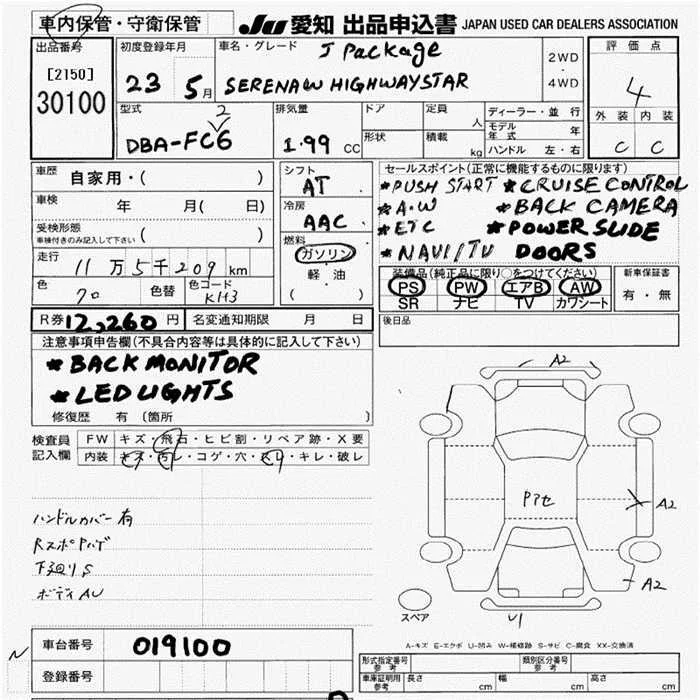 車内保管・守衛保管
JU 愛知 出品申込書 JAPAN USED CAR DEALERS ASSOCIATION
出品番号 初度登録年月 車名・グレード J Package 2WD・4WD 評価点
[2150]
30100
23 5月 SERENA W HIGHWAYSTAR 4
型式 排気量 ドア 定員 人 ディーラー・並行 外装 内装
2
DBA-FC6 1.99 CC 形状 積載 kg モデル年式 年 C C
ハンドル 左・右
車歴 自家用・( ) シフト AT セールスポイント(正常に機能するものに限ります)
車検 年 月( 日) 冷房 AAC
*PUSH START *CRUISE CONTROL
*A.W *BACK CAMERA
*ETC *POWER SLIDE
*NAVI/TV DOORS
受検形態 車検付きのみ記入して下さい ( )
燃料 ガソリン 軽油 ( )
走行 11万5千209km
色 70 色替 色コード KH3
装備品(純正品に限り○をつけてください) 新車保証書
PS PW エアB AW 有・無
SR ナビ TV カワシート
R券 12,260円 名変通知期限 月 日 後日品
注意事項申告欄(不具合内容等は具体的に記入して下さい)
*BACK MONITOR
*LED LIGHTS
修復歴 有 (箇所
検査員記入欄 FW キズ・飛石・ヒビ割・リペア跡・X要
内装 キズ・汚レ・コゲ・穴・スリ・キレ・破レ
ハンドルカバー有
下廻りS
A2
Pアセ
A2
A2
U1
スペア
A-キズ E-エクボ U-凹み W-補修跡 S-サビ C-腐食 XX-交換済
車台番号 019100
登録番号
形式指定番号 参考 類別区分番号 参考
車庫証明用 参考 長さ cm 幅 cm 高さ cm